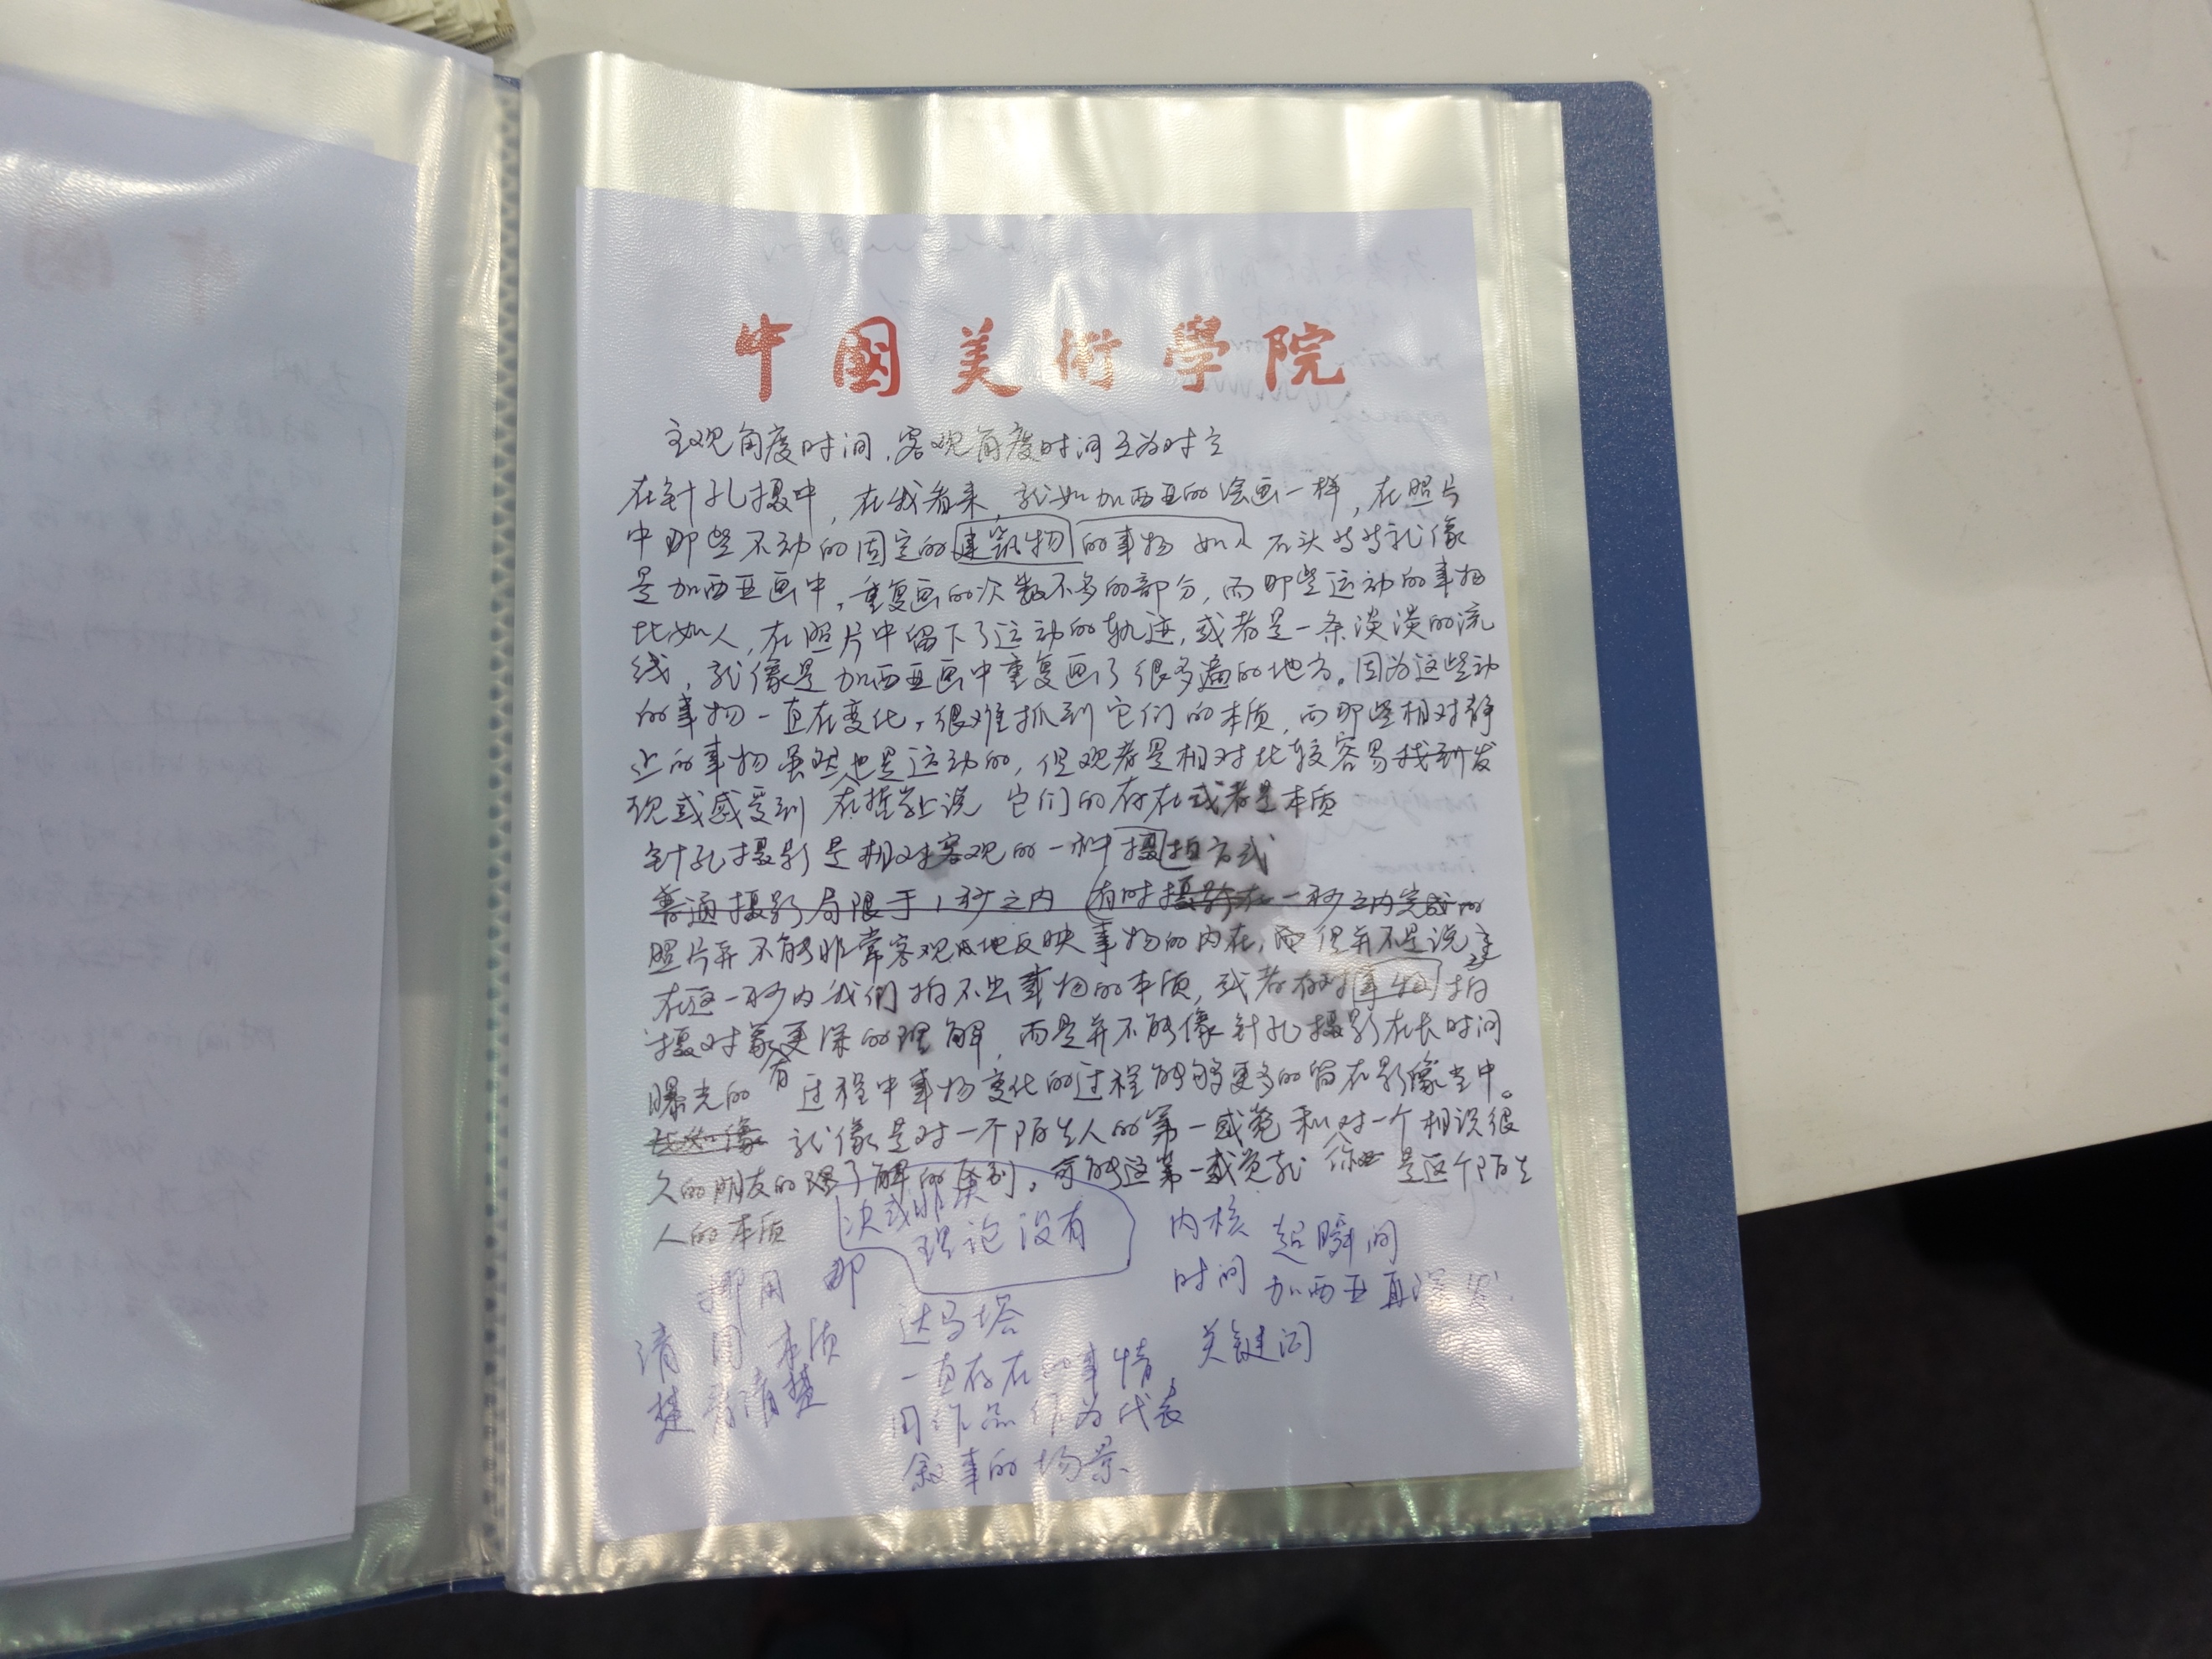 中國美術學院
主观角度时间，客观角度时间互为对立
在针孔摄中，在我看来，就如加西亚的绘画一样，在照片
中那些不动的固定的建筑物的事物 如 石头等等就像
是加西亚画中，重复画的次数不多的部分，而那些运动的事物
比如人，在照片中留下了运动的轨迹，或者是一条淡淡的流
线，就像是加西亚画中重复画了很多遍的地方。因为这些动
的事物一直在变化，很难抓到它们的本质，而那些相对静
止的事物虽然也是运动的，但观者是相对比较容易找到发
现或感受到 在哲学上说 它们的存在或者是本质
针孔摄影是相对客观的一种摄拍方式
普通摄影局限于1秒之内 有时摄影在一秒之内完成的
照片并不能非常客观地反映事物的内在，但并不是说
在这一秒内我们拍不出事物的本质，或者有对事物拍
摄对象更深的理解，而是并不能像针孔摄影在长时间
有
曝光的 过程中事物变化的过程能够更多的留在影像当中。
比如像 就像是对一个陌生人的第一感觉和对一个相识很
久的朋友的 了解的区别，可能这第一感觉就 你 是这个陌生
人的本质
次或非类
理论没有
内核 超瞬间
时间 加西亚
挪用 那
达马塔
关键词
清 用 本质
楚 清楚
一直存在的事情
用作品作为代表
叙事的场景